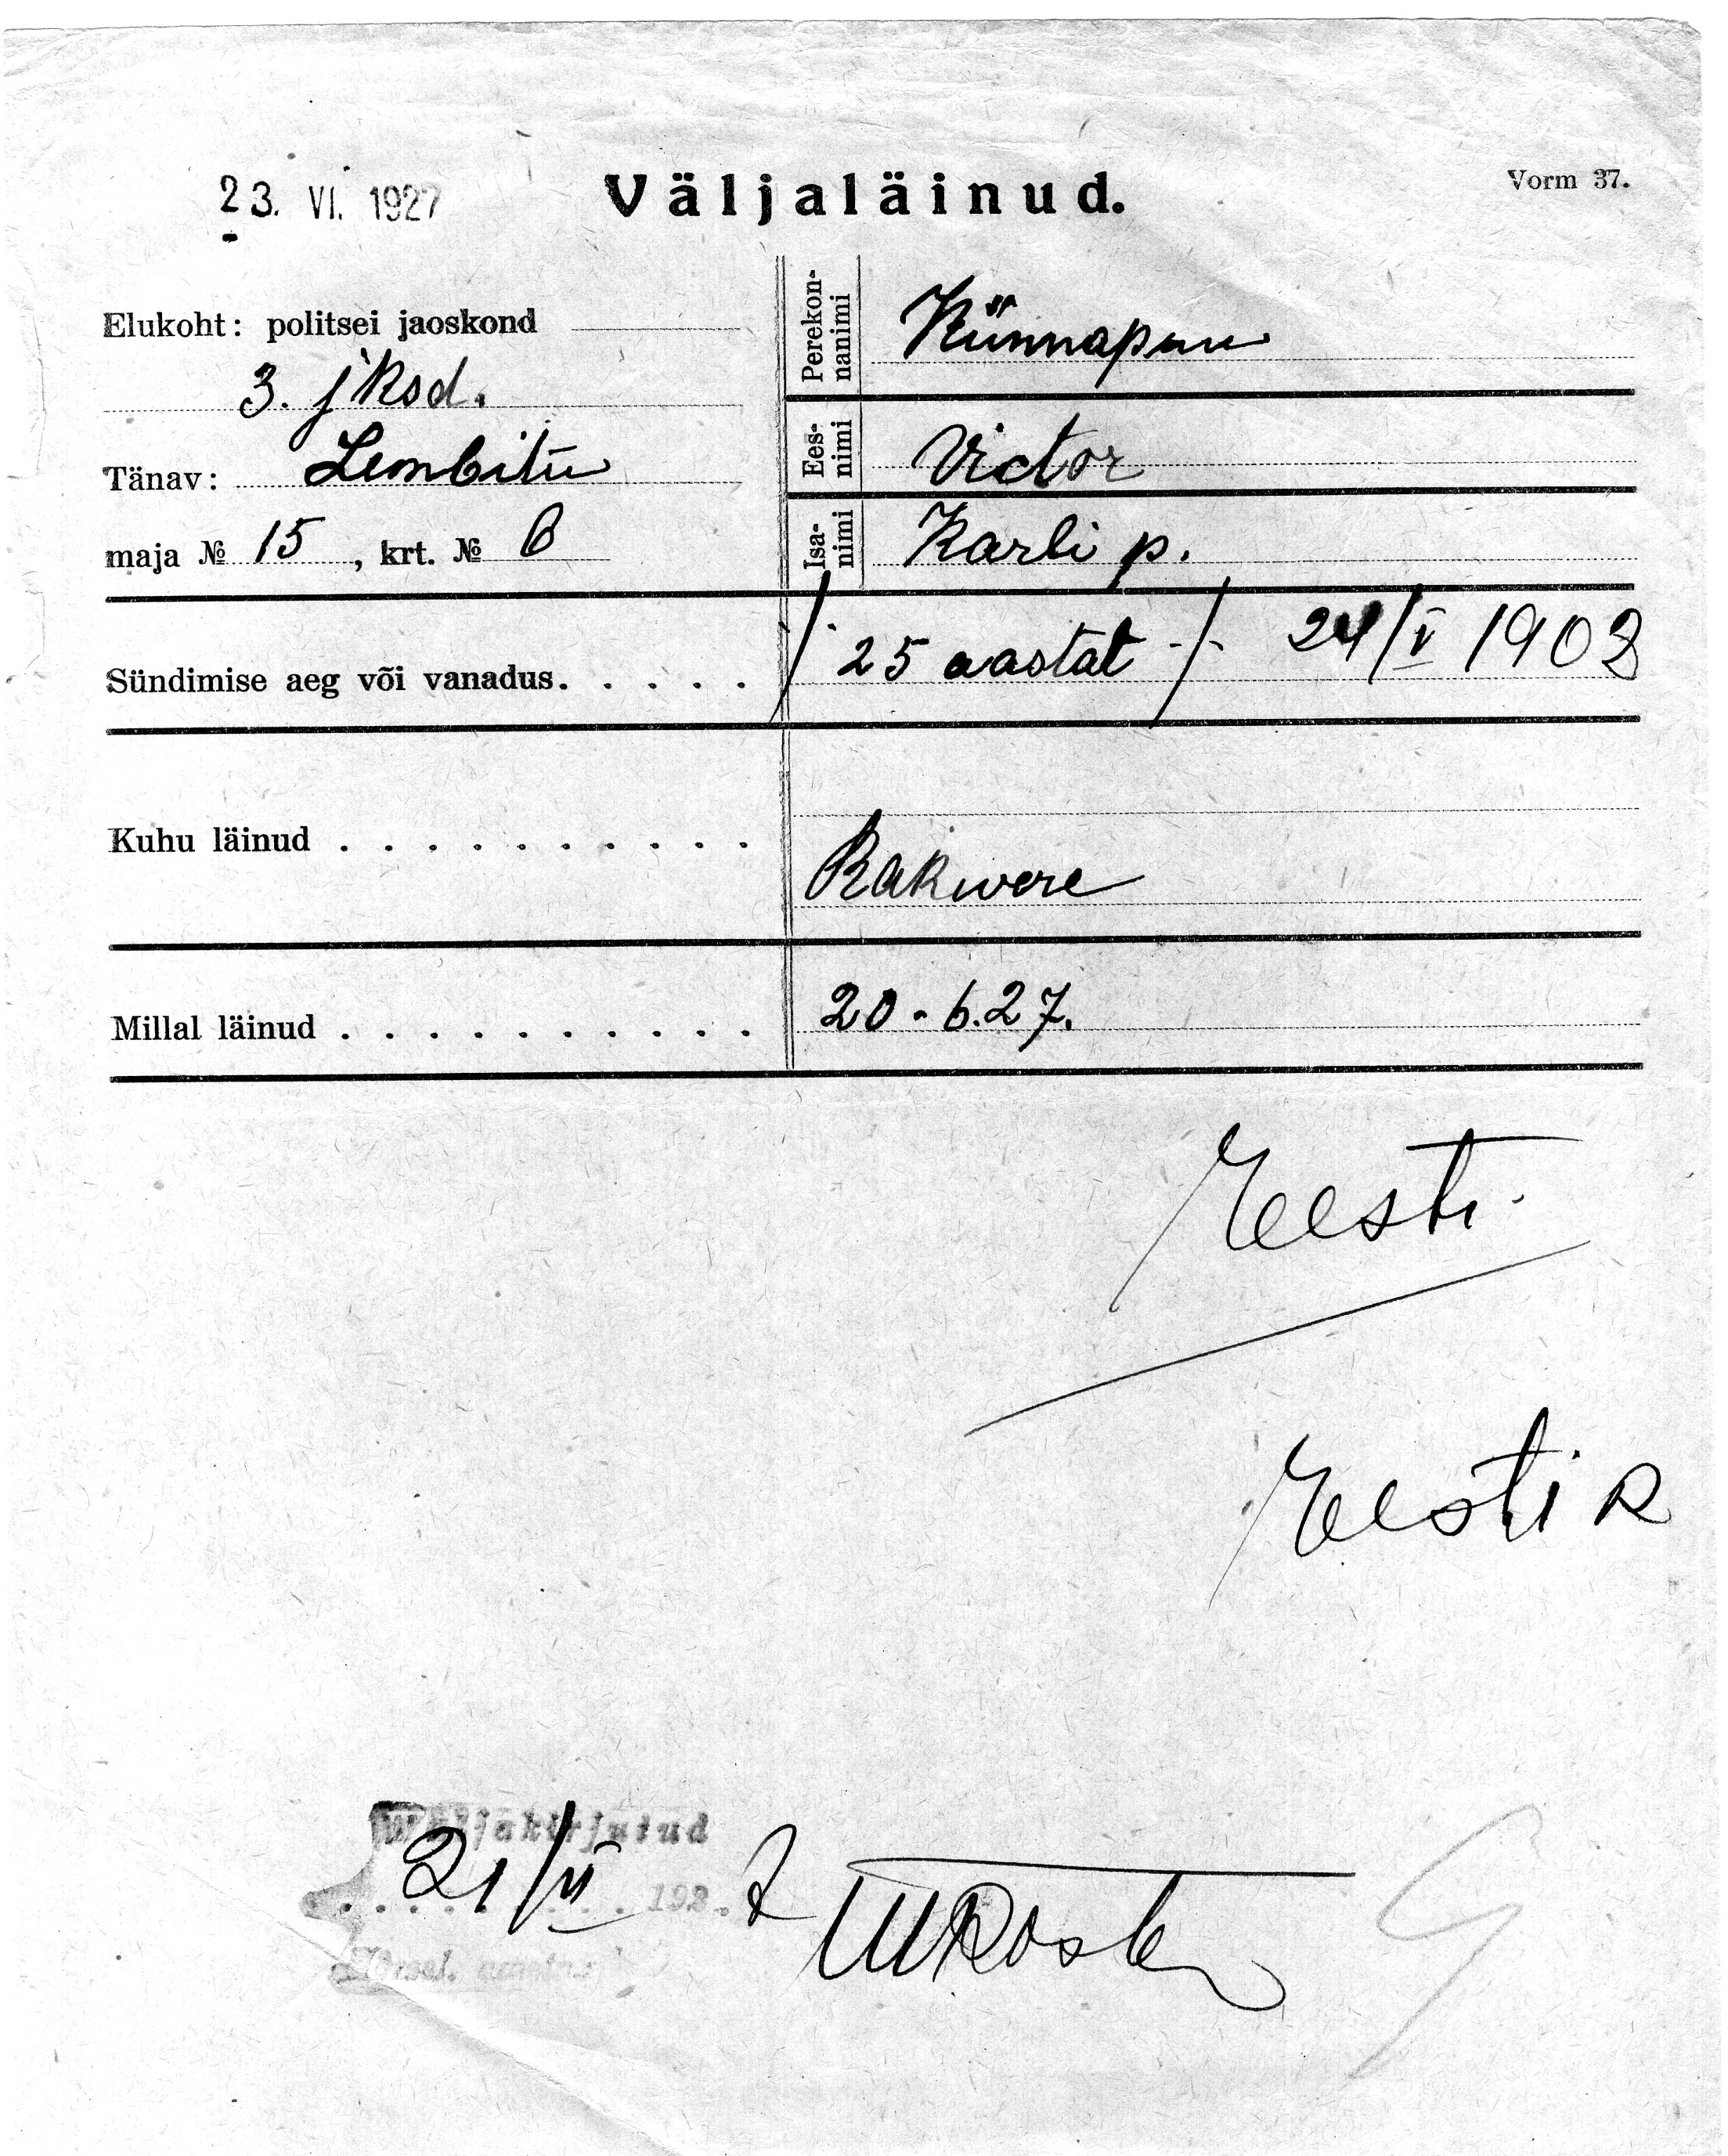 23. VI. 1927
Väljaläinud.
Vorm 37.
Elukoht: politsei jaoskond
3. jksd.
Tänav: Lembitu
maja № 15, krt. № 6
Perekonnanimi Künnapuu
Eesnimi Victor
Isanimi Karli p.
Sündimise aeg või vanadus. . . . . /25 aastat -/- 24/V 1902
Kuhu läinud . . . . . . . . . . Rakwere
Millal läinud . . . . . . . . . . 20.6.27.
Eesti
Eesti R
Wäljakirjutud
21/VI 192. 7